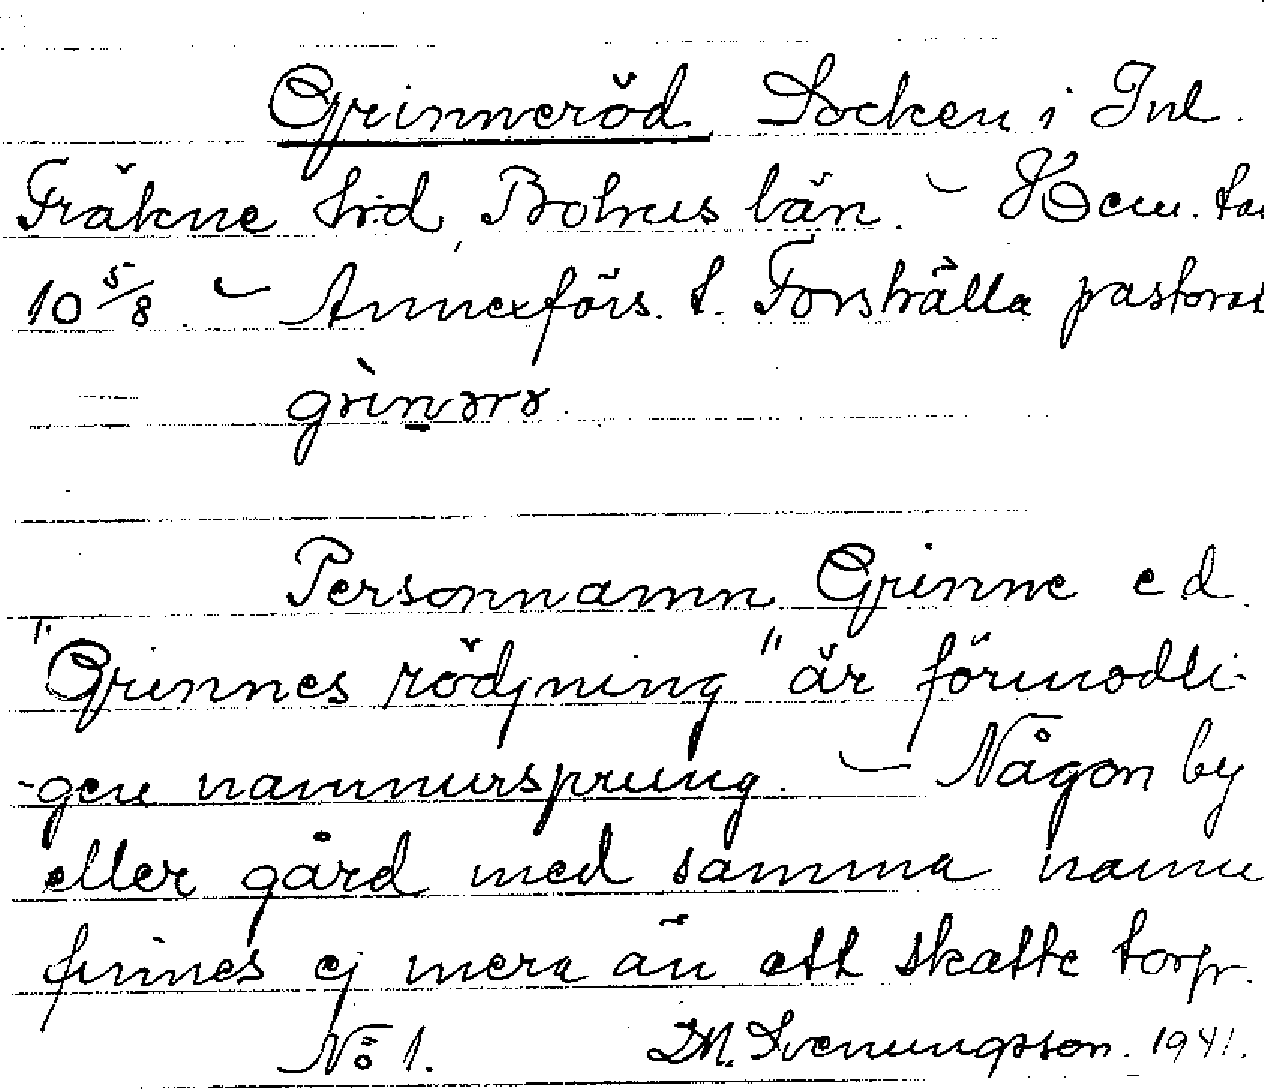 Grinneröd Socken i Inl.
Fräkne hrd, Bohus län. – Hem.tal
10 5/8. – Annexförs. t. Forshälla pastorat
grìnərə.
Personnamn Grinne e d.
"Grinnes rödjning" är förmodli-
-gen namnursprung. – Någon by
eller gård med samma namn
finnes ej mera än ett skatte torp.
No 1. DM. Svenungsson. 1941.